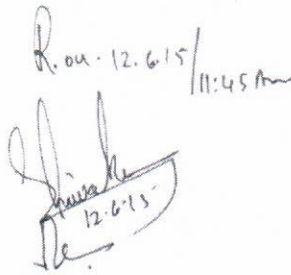 R. on. 12.6.15/11:45 Am
12.6.15